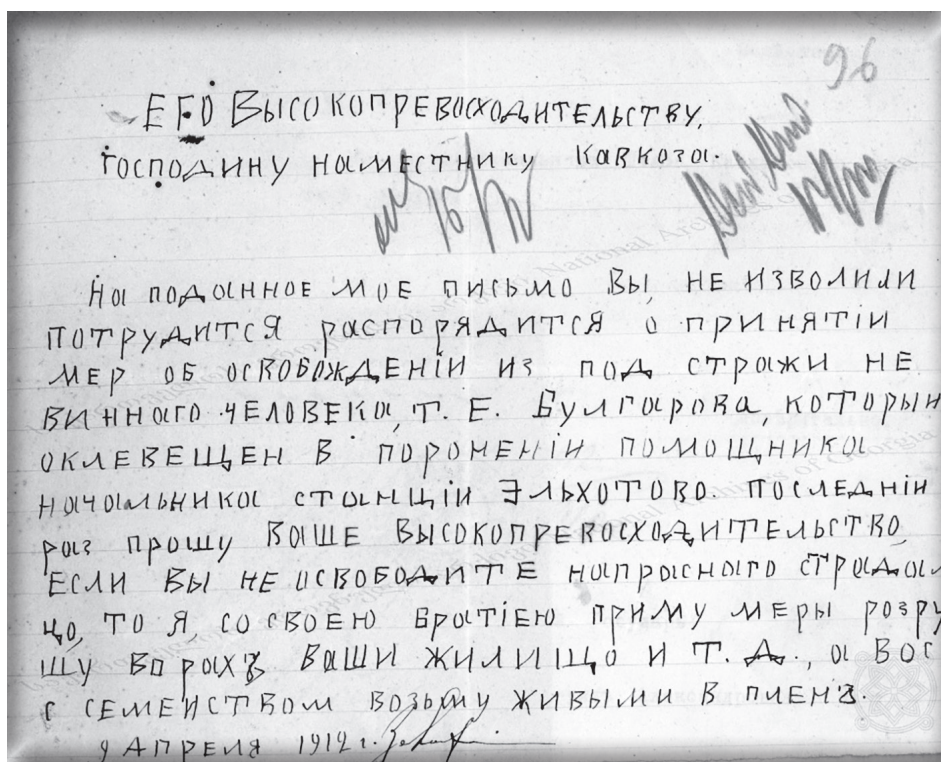 96
ЕГО ВЫСОКОПРЕВОСХОДИТЕЛЬСТВУ,
ГОСПОДИНУ НАМЕСТНИКУ КАВКОЗА.
НА ПОДАННОЕ МОЕ ПИСЬМО ВЫ, НЕ ИЗВОЛИЛИ
ПОТРУДИТСЯ РАСПОРЯДИТСЯ О ПРИНЯТІИ
МЕР ОБ ОСВОБОЖДЕНІИ ИЗ ПОД СТРАЖИ НЕ
ВИННАГО ЧЕЛОВЕКА, Т. Е. БУЛГАРОВА, КОТОРЫИ
ОКЛЕВЕЩЕН В ПОРОМЕНІИ ПОМОЩНИКА
НАЧАЛЬНИКА СТАНЦІИ ЭЛЬХОТОВО. ПОСЛЕДНІИ
РАЗ ПРОШУ ВАШЕ ВЫСОКОПРЕВОСХОДИТЕЛЬСТВО,
ЕСЛИ ВЫ НЕ ОСВОБОДИТЕ НАПРАСНАГО СТРАДАЛ
ЦО, ТО Я, СО СВОЕЮ БРАТІЕЮ ПРИМУ МЕРЫ РОЗРУ
ШУ ВО РАХЪ ВАШИ ЖИЛИЩО И Т. Д., А ВОС
С СЕМЕЙСТВОМ ВОЗЬМУ ЖИВЫМИ В ПЛЕНЪ.
9 АПРЕЛЯ 1912 г.
National Archives of Georgia